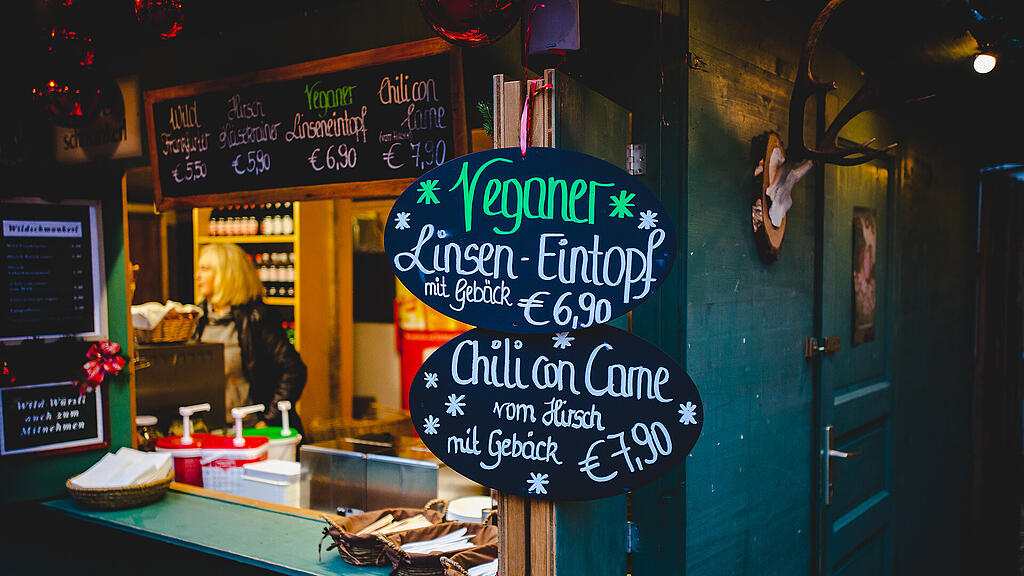 Wild
Frankfurter
€5,50
Hirsch
Käsekrainer
€5,90
Veganer
Linseneintopf
€6,90
Chili con
Carne
vom Hirsch
€7,90
Veganer
Linsen-Eintopf
mit Gebäck
€6,90
Chili con Carne
vom Hirsch
mit Gebäck
€7,90
Wildschmankerl
Wild Würstl
auch zum
Mitnehmen